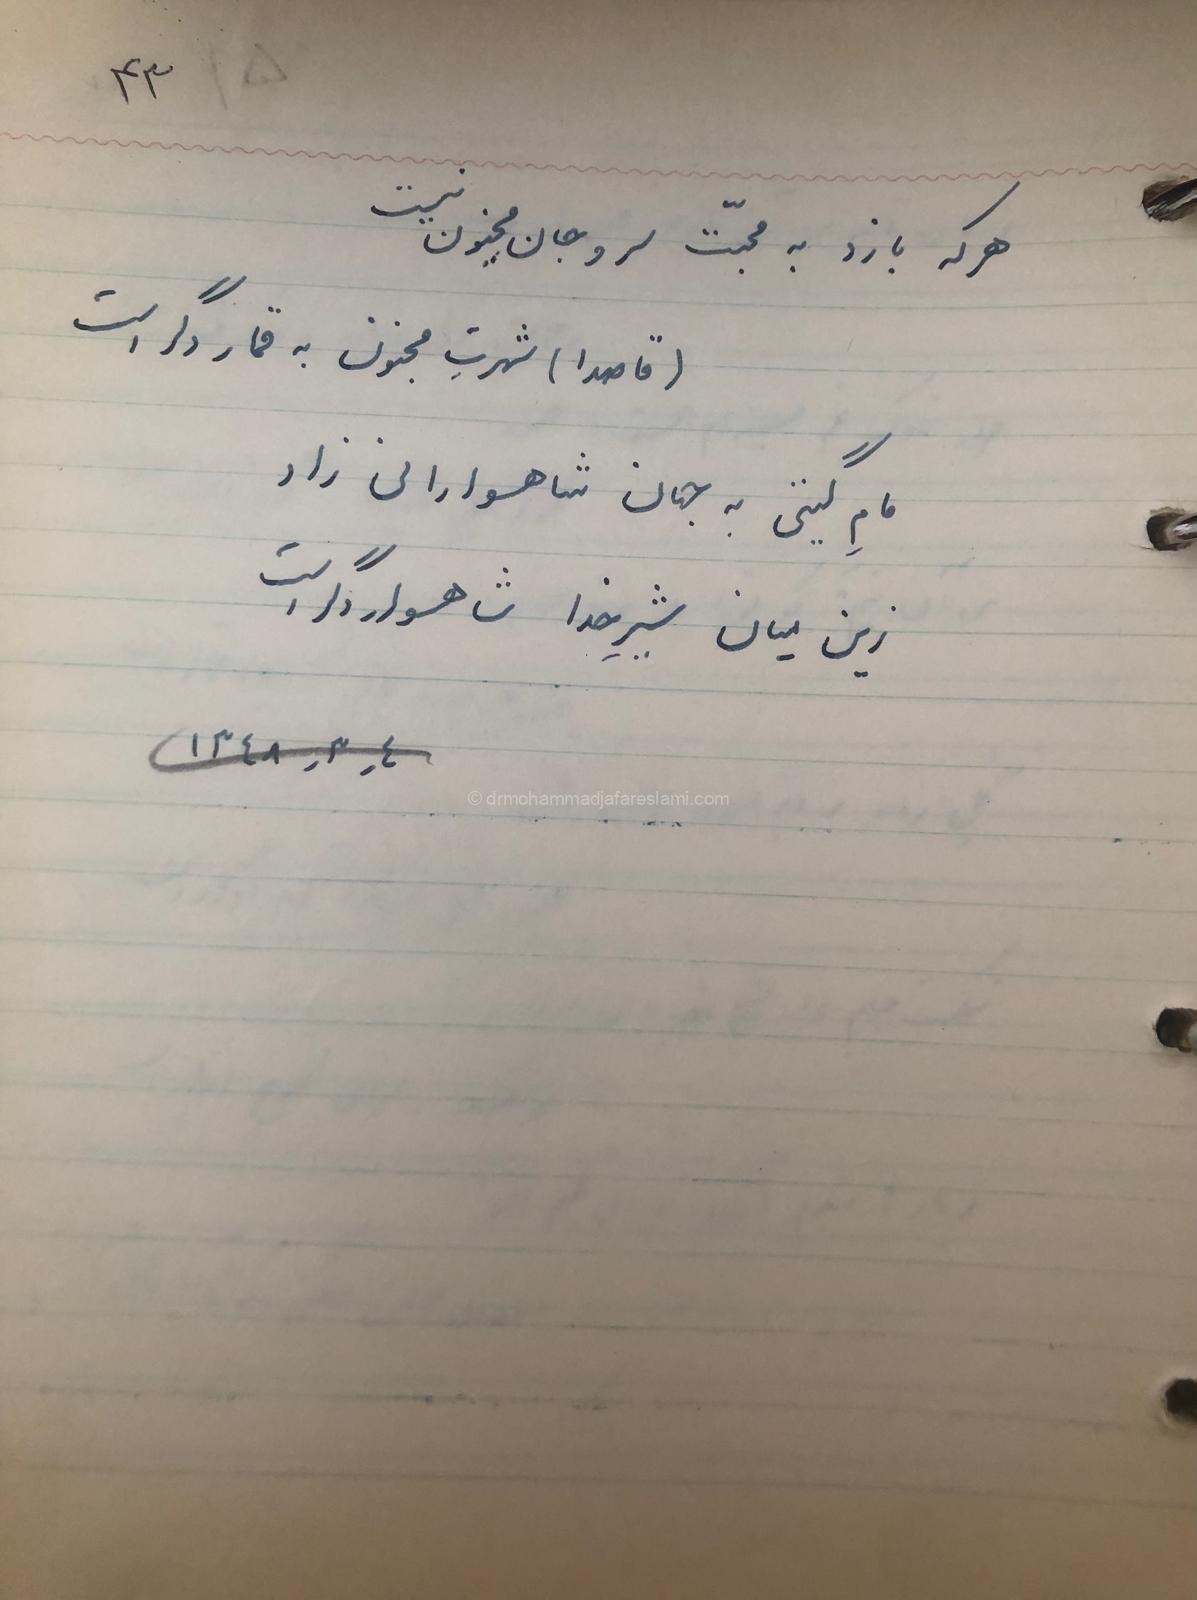 ۴۳
هر که بازد به محبّت سر و جان مجنون نیست
(قاصدا) شهرتِ مجنون به قمار دگر است
مامِ گیتی به جهان شاهسوارانی زاد
زین میان شیرِ خدا شاهسوار دگر است
١٣٤٨ر٣ر٤
© drmohammadjafareslami.com